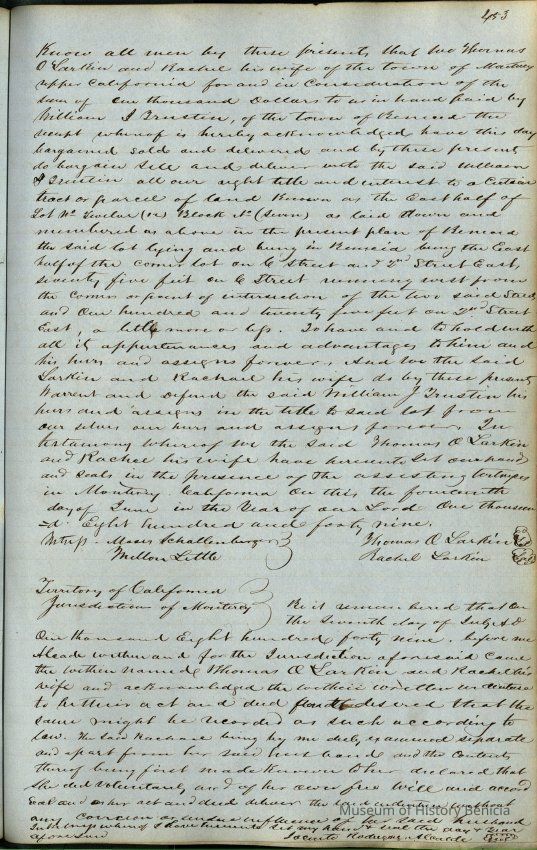 453
Know all men by these presents that we Thomas
O Larkin and Rachel his wife of the town of Monterey
upper California for and in consideration of the
sum of One thousand Dollars to us in hand paid by
William J Trustin, of the town of Benicia the
receipt whereof is hereby acknowledged have this day
bargained sold and delivered and by these presents
do bargain sell and deliver unto the said William
J Trustin all our right title and interest to a Certain
tract or parcel of land Known as the East half of
Lot No Twelve (12) Block No (Seven) as laid down and
numbered as above in the present plan of Benicia
the said lot lying and being in Benicia being the East
half of the corner lot on C Street and 2nd Street East,
seventy five feet on C Street running west from
the Corner or point of intersection of the two said Streets
and One hundred and twenty five feet on 2nd Street
East, a little more or less. To have and to hold with
all its appertenances and advantages to him and
his heirs and assigns forever, And we the said
Larkin and Rachael his wife do by these presents
Warrent and defend the said William J Trustin his
heirs and assigns in the title to said lot from
our selves our heirs and assigns forever. In
testamony whereof we the said Thomas O Larkin
and Rachel his wife have hereunto Set our hands
and seals in the presence of the assisting Witnesses
in Monterey California On this the fourteenth
day of June in the Year of our Lord One thousand
Eight hundred and forty nine.
Witness Moses Schallenberger Thomas O Larkin
Milton Little Rachel Larkin
Territory of California
Jurisdiction of Monterey Be it remembered that On
the Seventh day of July A D
One thousand Eight hundred forty nine, before me
Alcade within and for the Jurisdiction aforesaid Came
the within named Thomas O Larkin and Rachel his
wife and acknowledged the within written
to be their act and deed and desired that the
same might be recorded as such according to
law. The said Rachael being by me duly examined separate
and apart from her said husband and the Contents
thereof being first made Known to her declared that
She did voluntarily and of her own free will and accord
Seal and as her act and deed deliver the without
any coercion or undue influence of her said husband
In witness whereof I have hereunto Set my hand & seal the day & Year
aforesaid Jacinto Rodriguez Alcalde
Museum of History Benicia